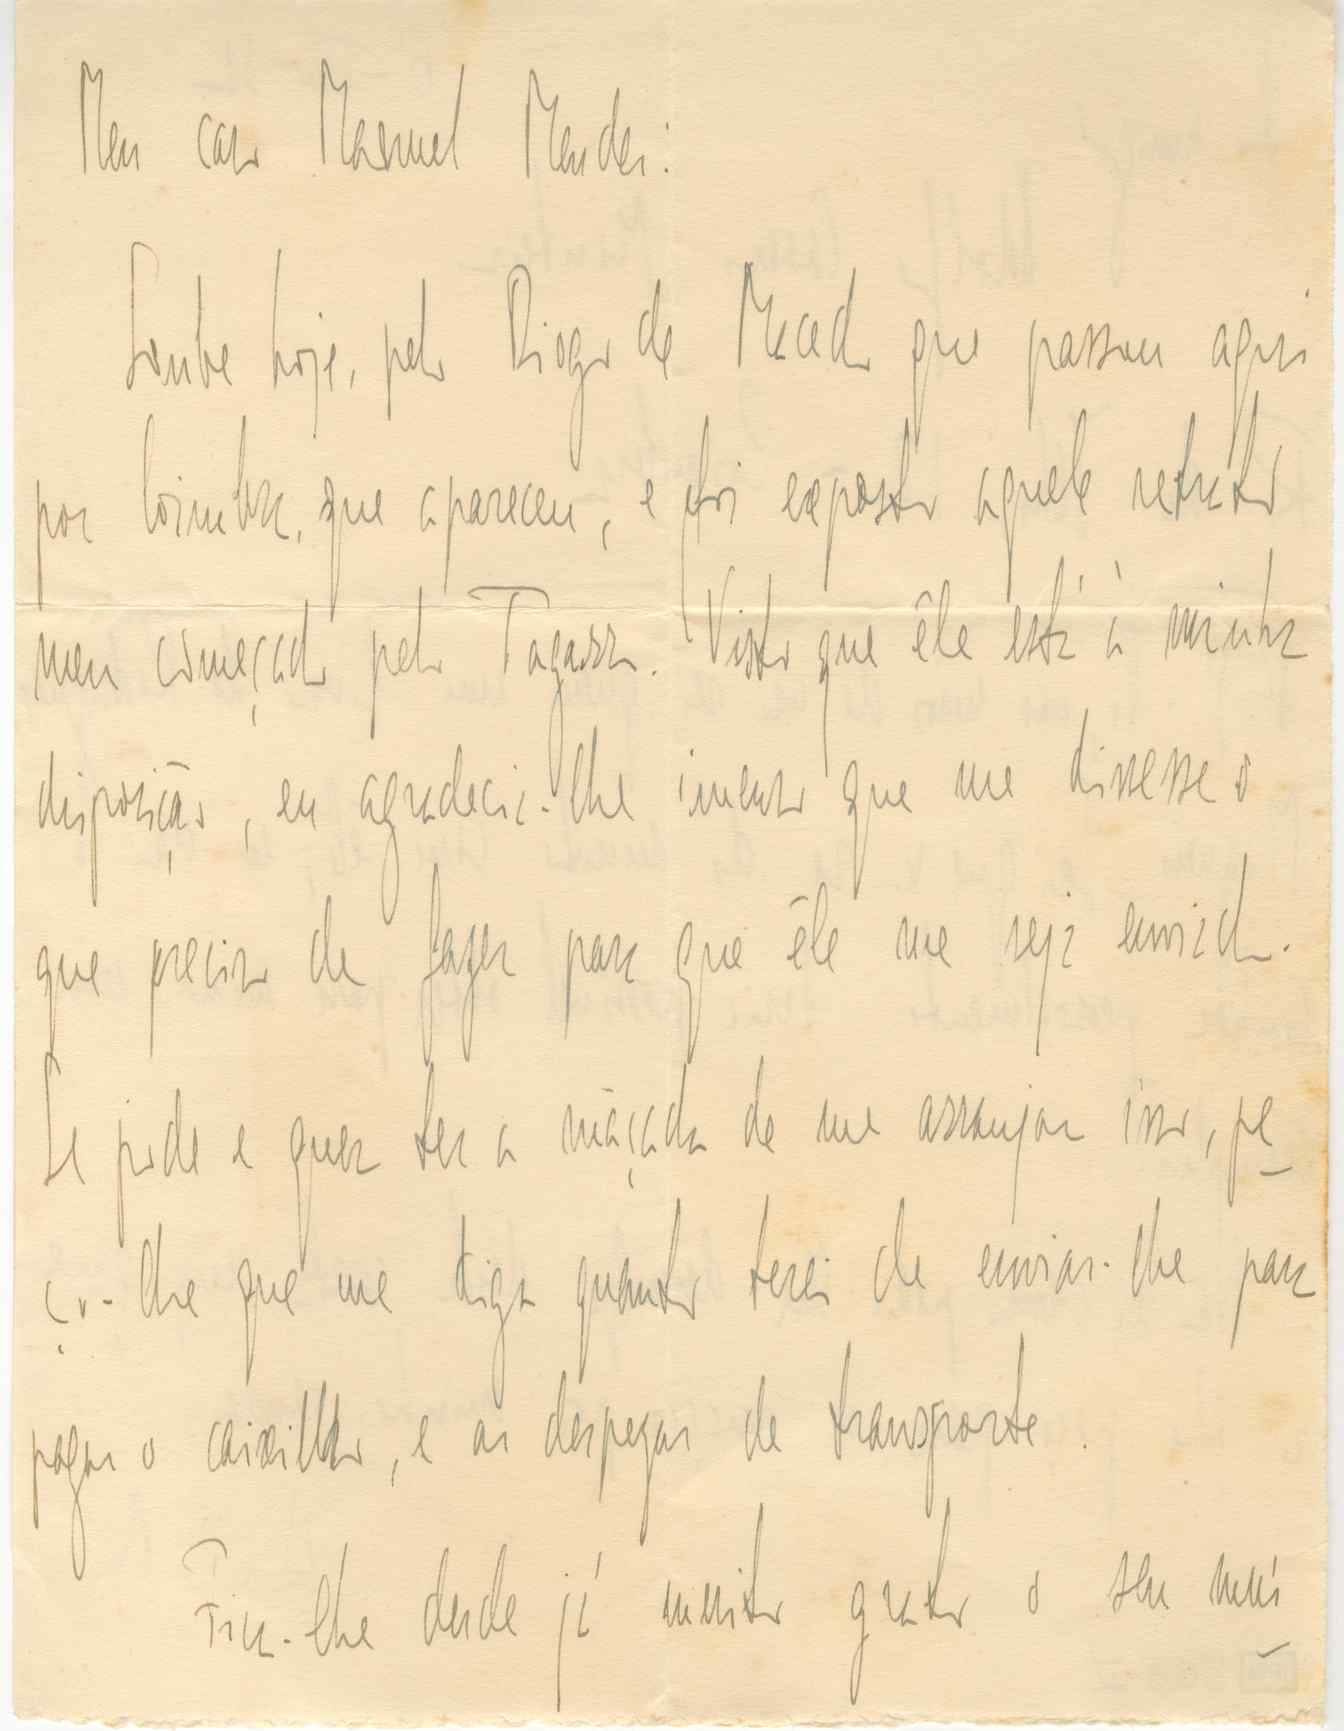 Meu caro Manuel Mendes:
Soube hoje, pelo Diogo de Macedo que passou aqui
por Coimbra, que apareceu, e foi exposto aquele retrato
meu começado pelo Tagarro. Visto que êle está à minha
disposição, eu agradecia-lhe imenso que me dissesse o
que preciso de fazer para que êle me seja enviado.
Se pode e quer ter a maçada de me arranjar isso, pe
ço-lhe que me diga quanto terei de enviar-lhe para
pagar o caixilho, e as despezas de transporte.
Fica-lhe desde já muito grato o seu mui